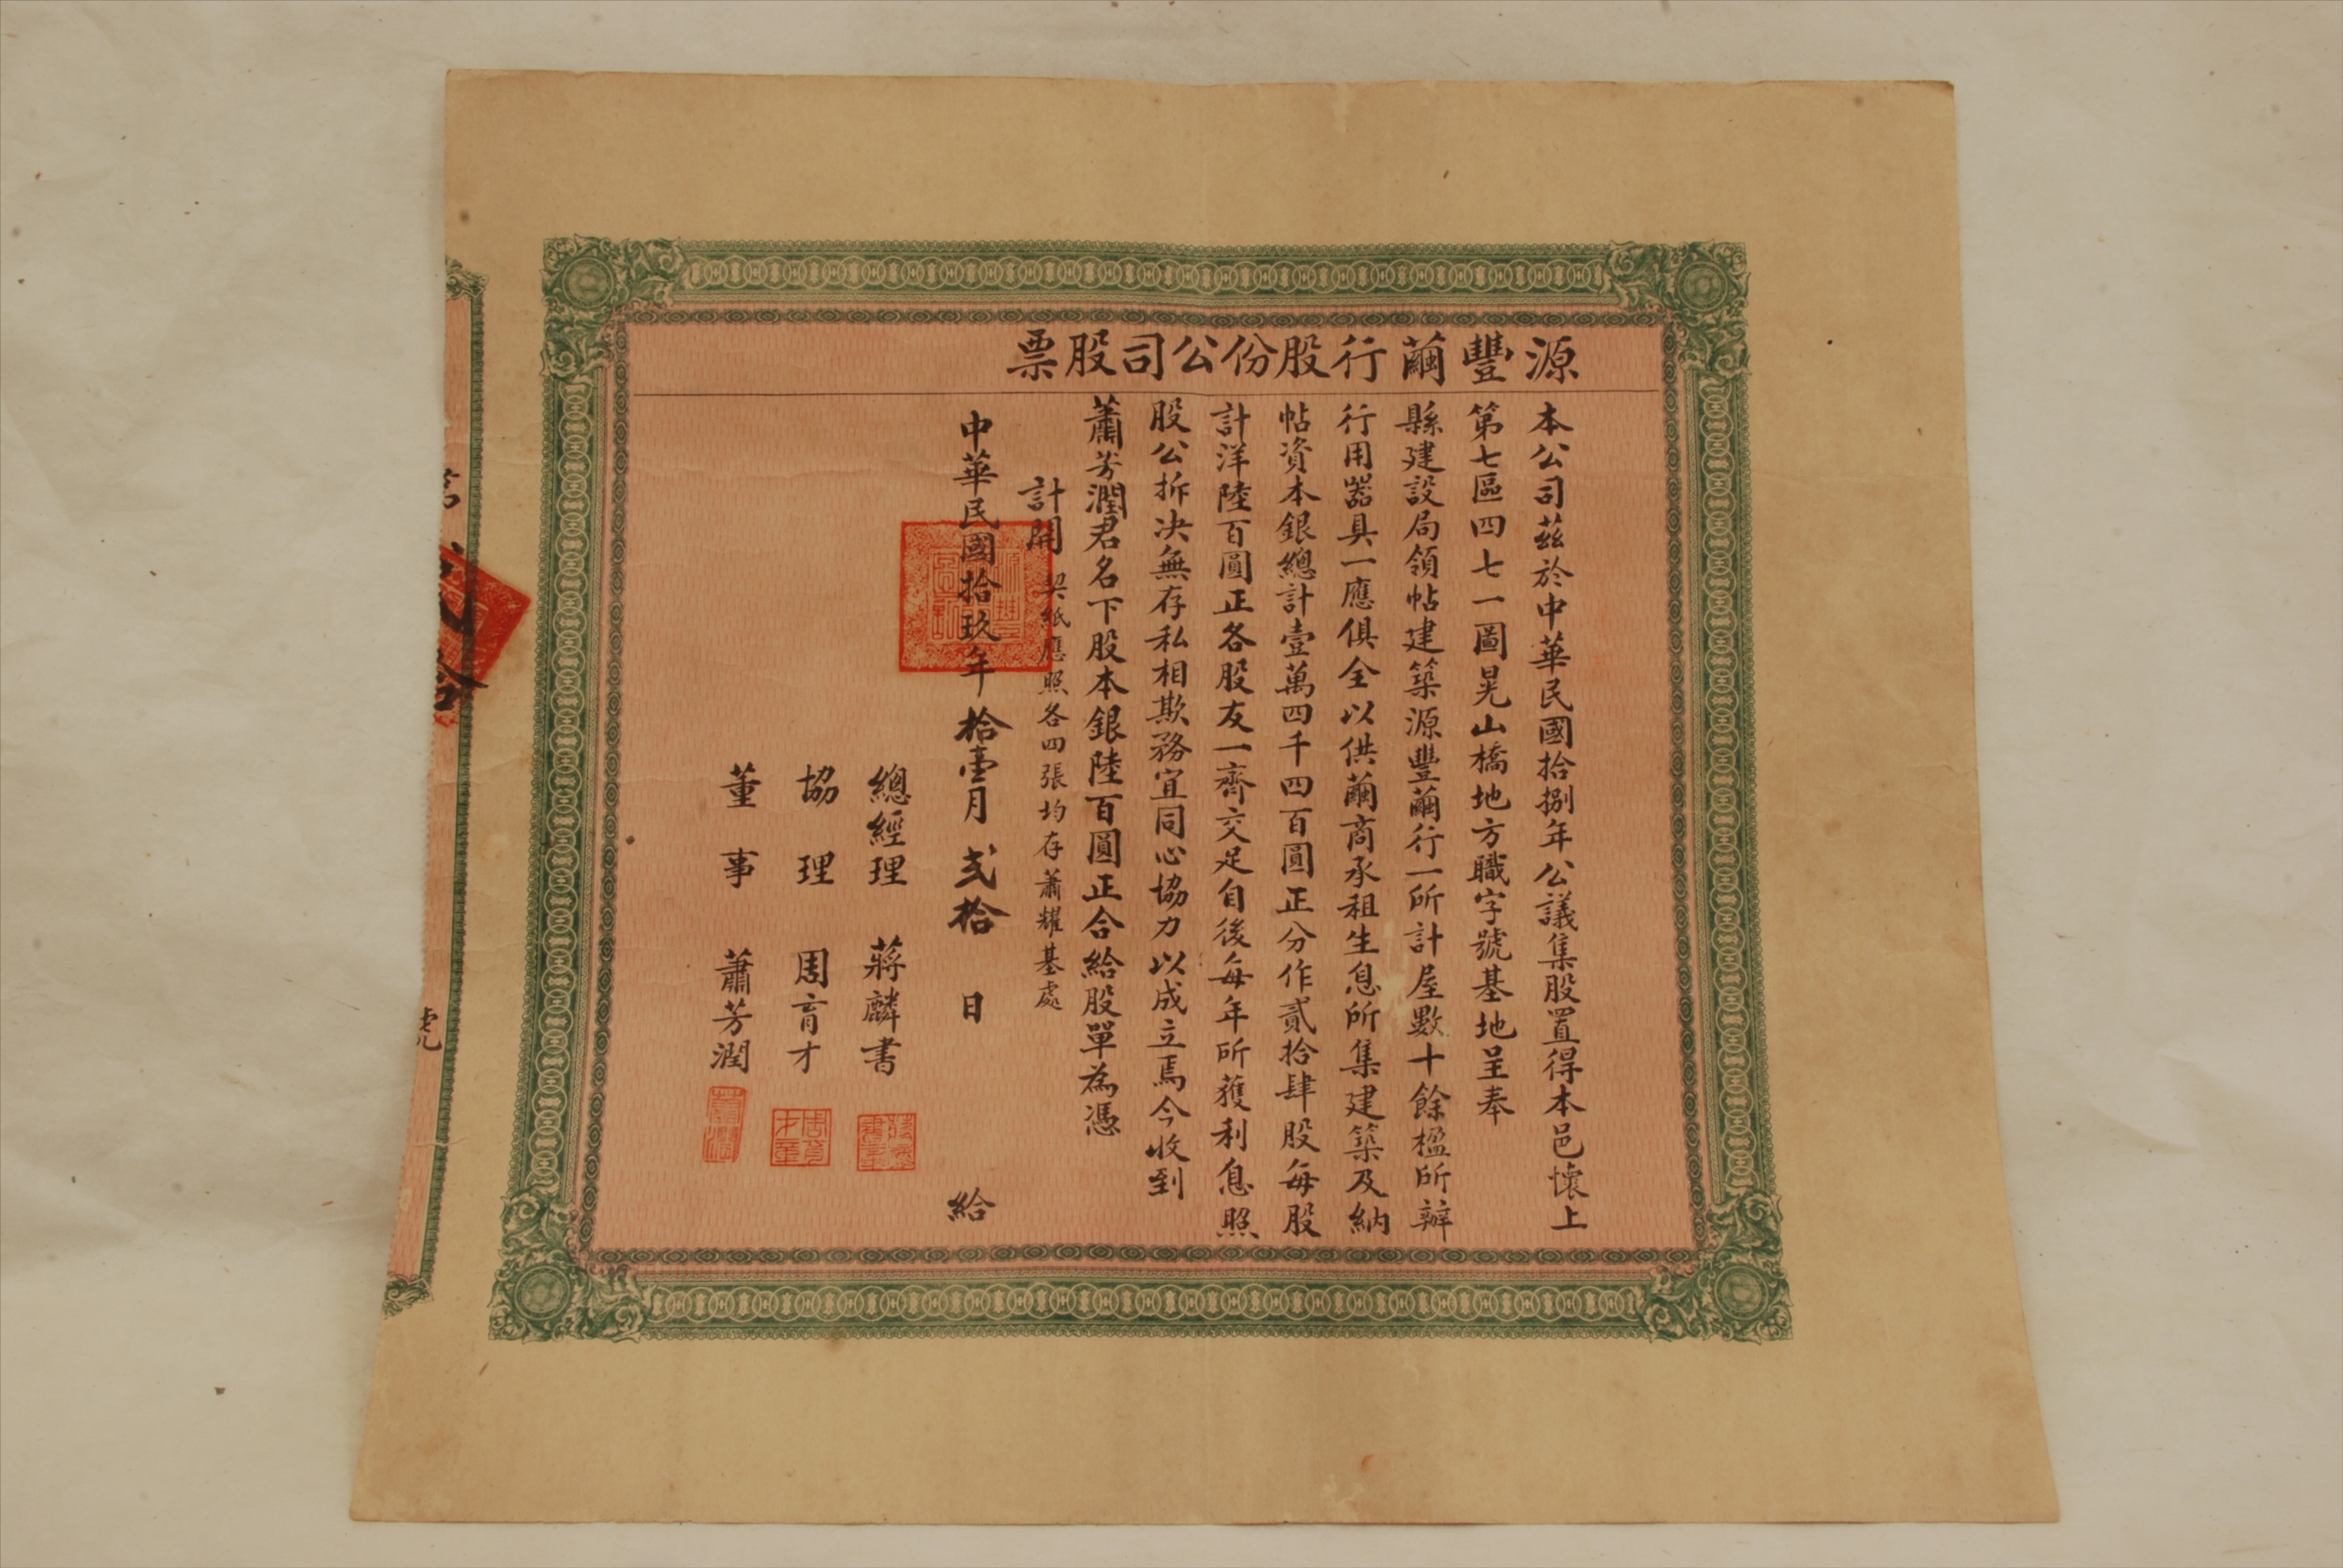 源豐繭行股份公司股票
本公司茲於中華民國拾捌年公議集股置得本邑懷上
第七區四七一圖晃山橋地方職字號基地呈奉
縣建設局領帖建築源豐繭行一所計屋數十餘楹所辦
行用器具一應俱全以供繭商承租生息所集建築及納
帖資本銀總計壹萬四千四百圓正分作貳拾肆股每股
計洋陸百圓正各股友一齊交足自後每年所獲利息照
股公拆決無存私相欺務宜同心協力以成立焉今收到
蕭芳潤君名下股本銀陸百圓正合給股單為憑
計開 契紙應照各四張均存蕭耀基處
中華民國拾玖年拾壹月弍拾日給
總經理 蔣麟書
協理 周育才
董事 蕭芳潤